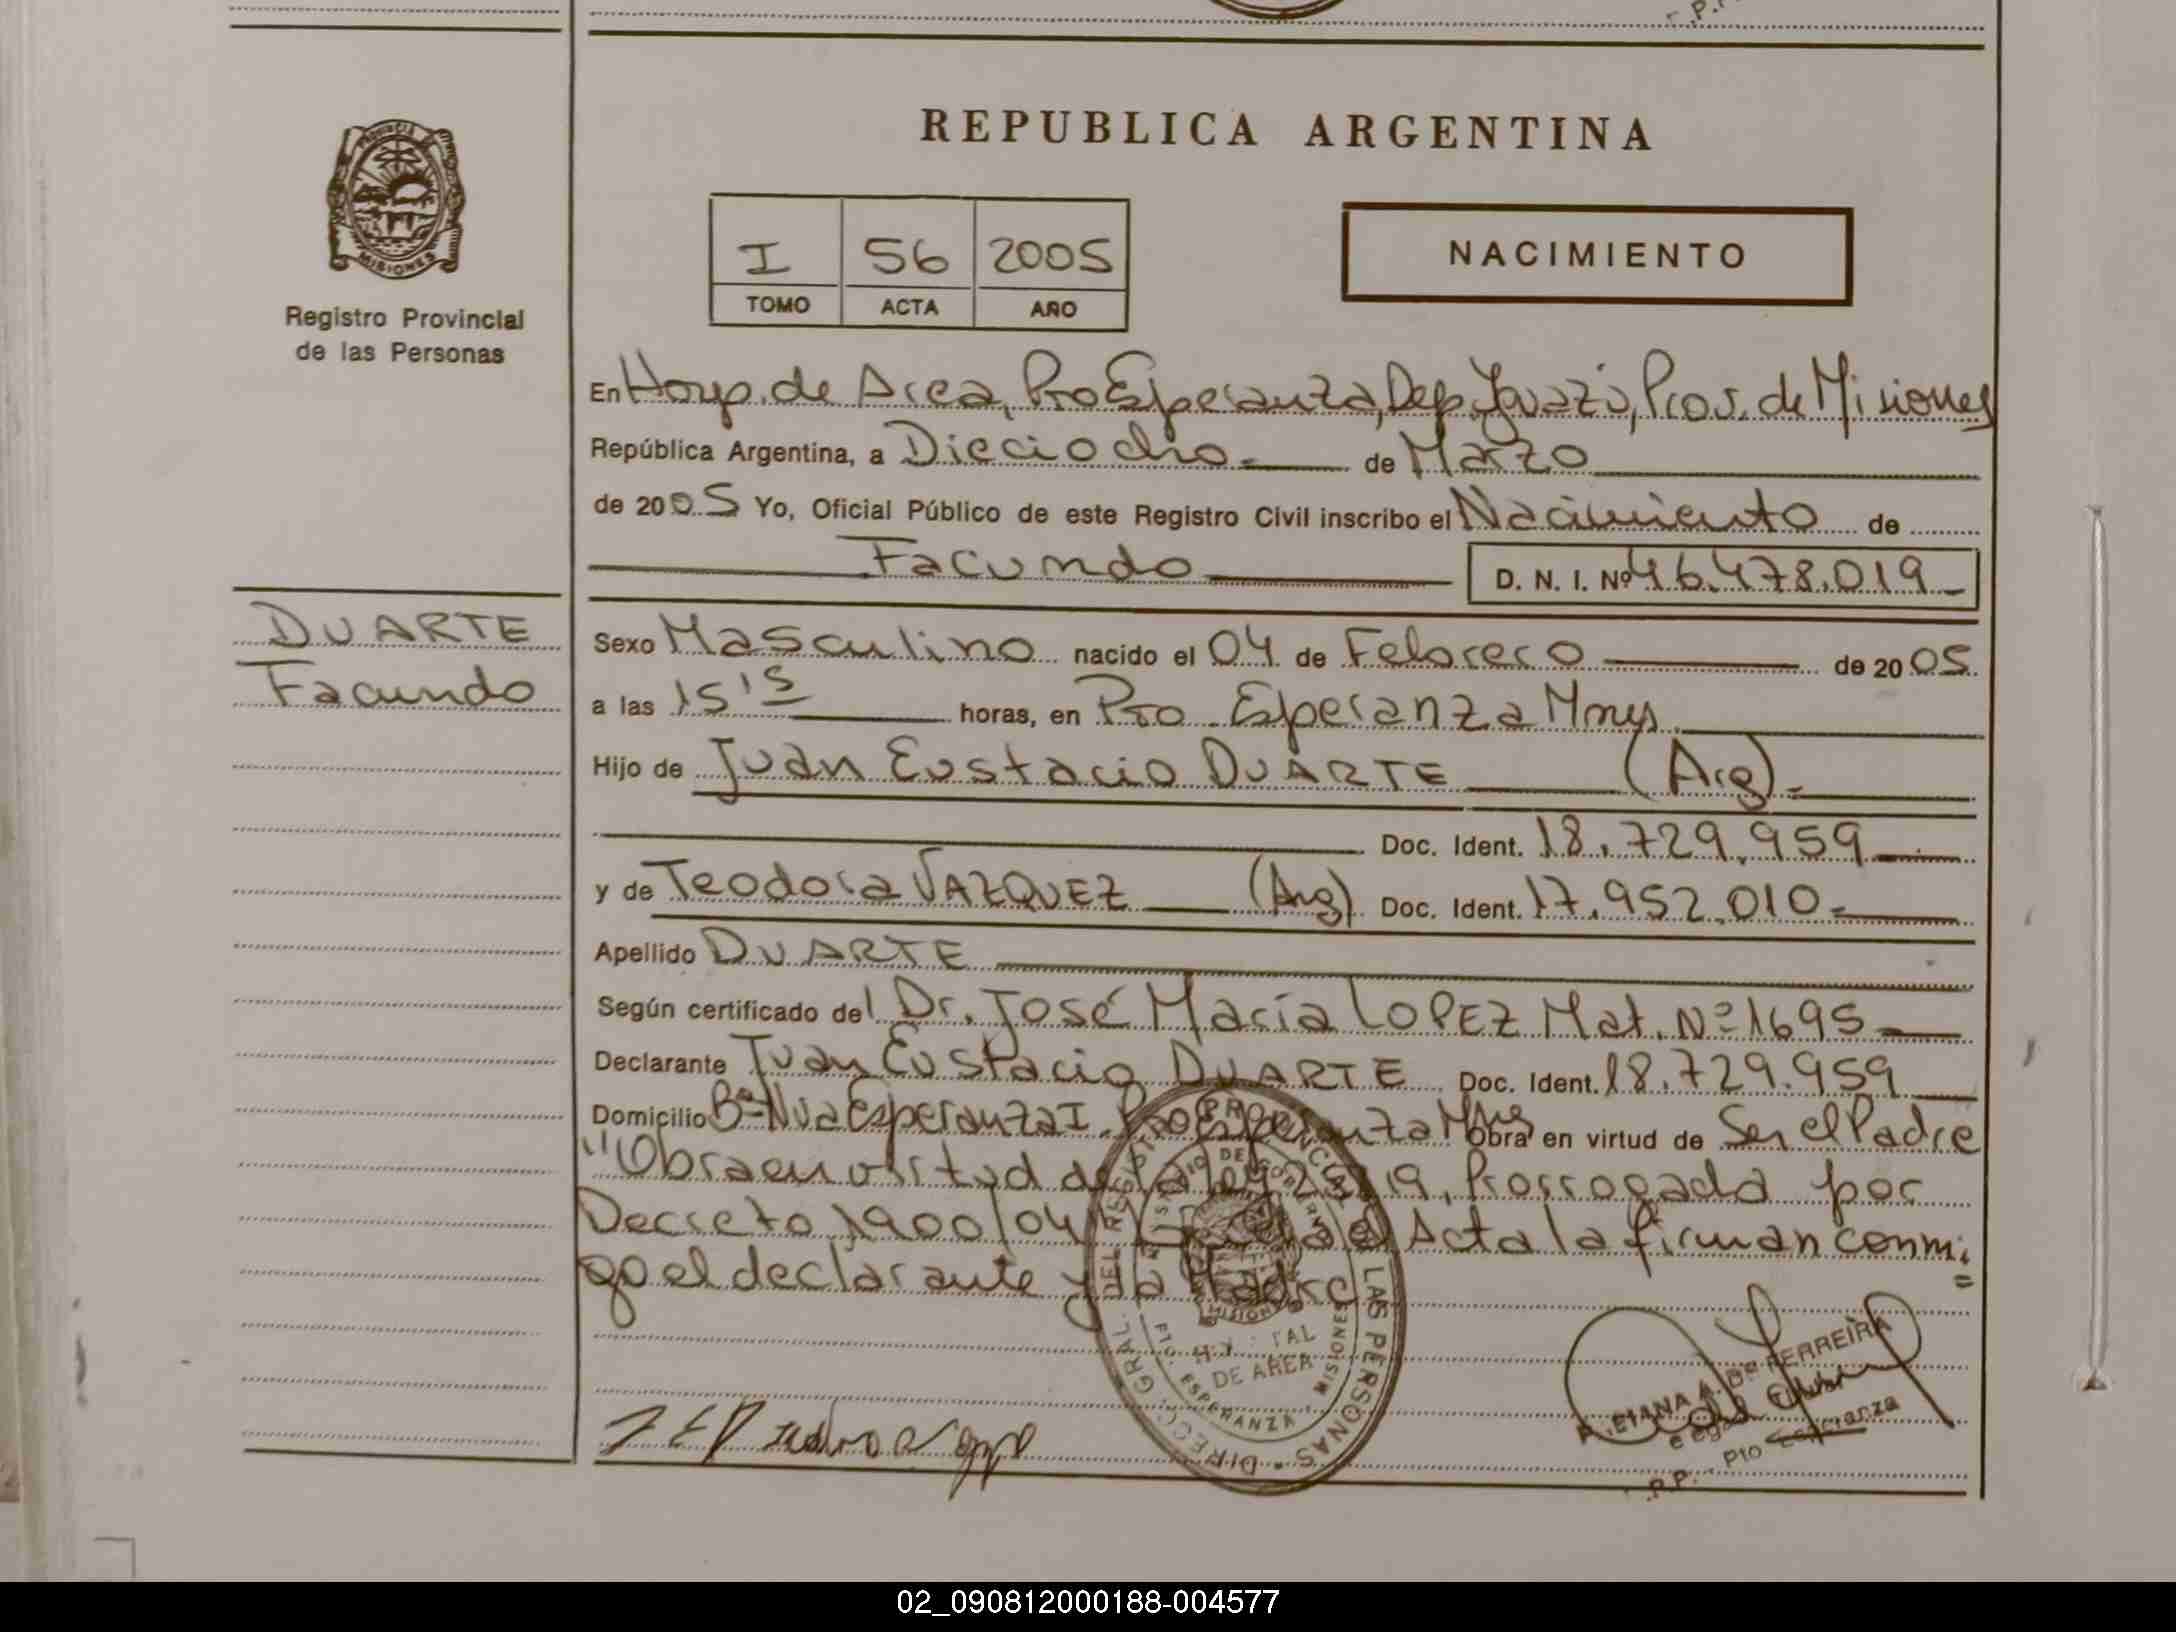 REPUBLICA ARGENTINA
PROVINCIA DE
MISIONES
Registro Provincial
de las Personas
I 56 2005
TOMO ACTA AÑO
NACIMIENTO
En Hosp. de Area, Pto Esperanza, Dep. Iguazú, Prov. de Misiones
República Argentina, a Dieciocho.- de Marzo
de 2005 Yo, Oficial Público de este Registro Civil inscribo el Nacimiento de
Facundo D. N. I. Nº 46.478.019
DUARTE
Facundo
Sexo Masculino nacido el 04 de Febrero de 2005
a las 15'5 horas, en Pto Esperanza Mnes
Hijo de Juan Eustacio DUARTE (Arg).-
Doc. Ident. 18.729.959
y de Teodora VAZQUEZ (Arg) Doc. Ident. 17.952.010.-
Apellido DUARTE
Según certificado del Dr. José María LOPEZ Mat. Nº 1695
Declarante Juan Eustacio DUARTE Doc. Ident. 18.729.959
Domicilio Bº Nva Esperanza I. Pto Esperanza Mnes Obra en virtud de Ser el Padre
"Obra en virtud de la Ley 19, Prorrogada por
Decreto 1900/04 el Acta la firman conmi=
go el declarante y la Madre
DIRECC. GRAL. DEL REG. PROVINCIAL DE LAS PERSONAS
MINISTERIO DE GOBIERNO
MISIONES
DE AREA
PTO. ESPERANZA MISIONES
DE FERREIRA
Pto Esperanza
R.P.P.
02_090812000188-004577